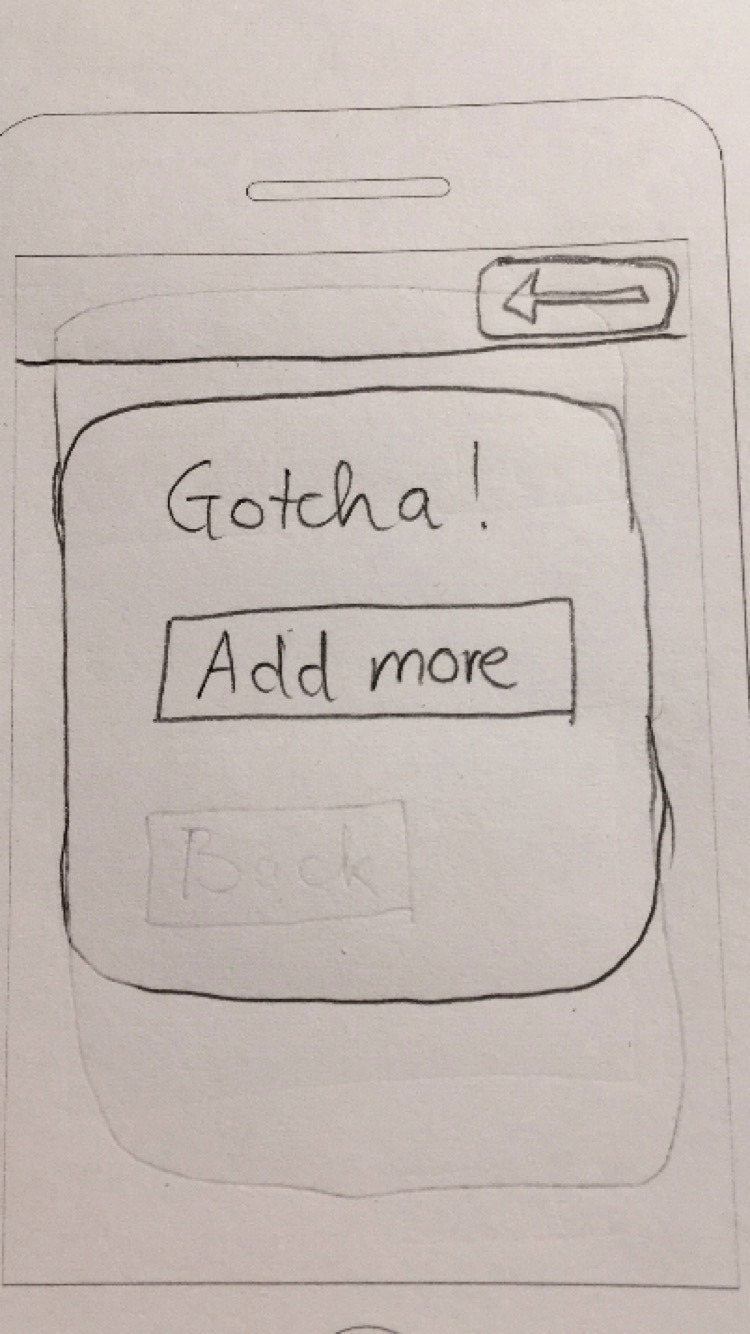 Gotcha!
Add more
Back